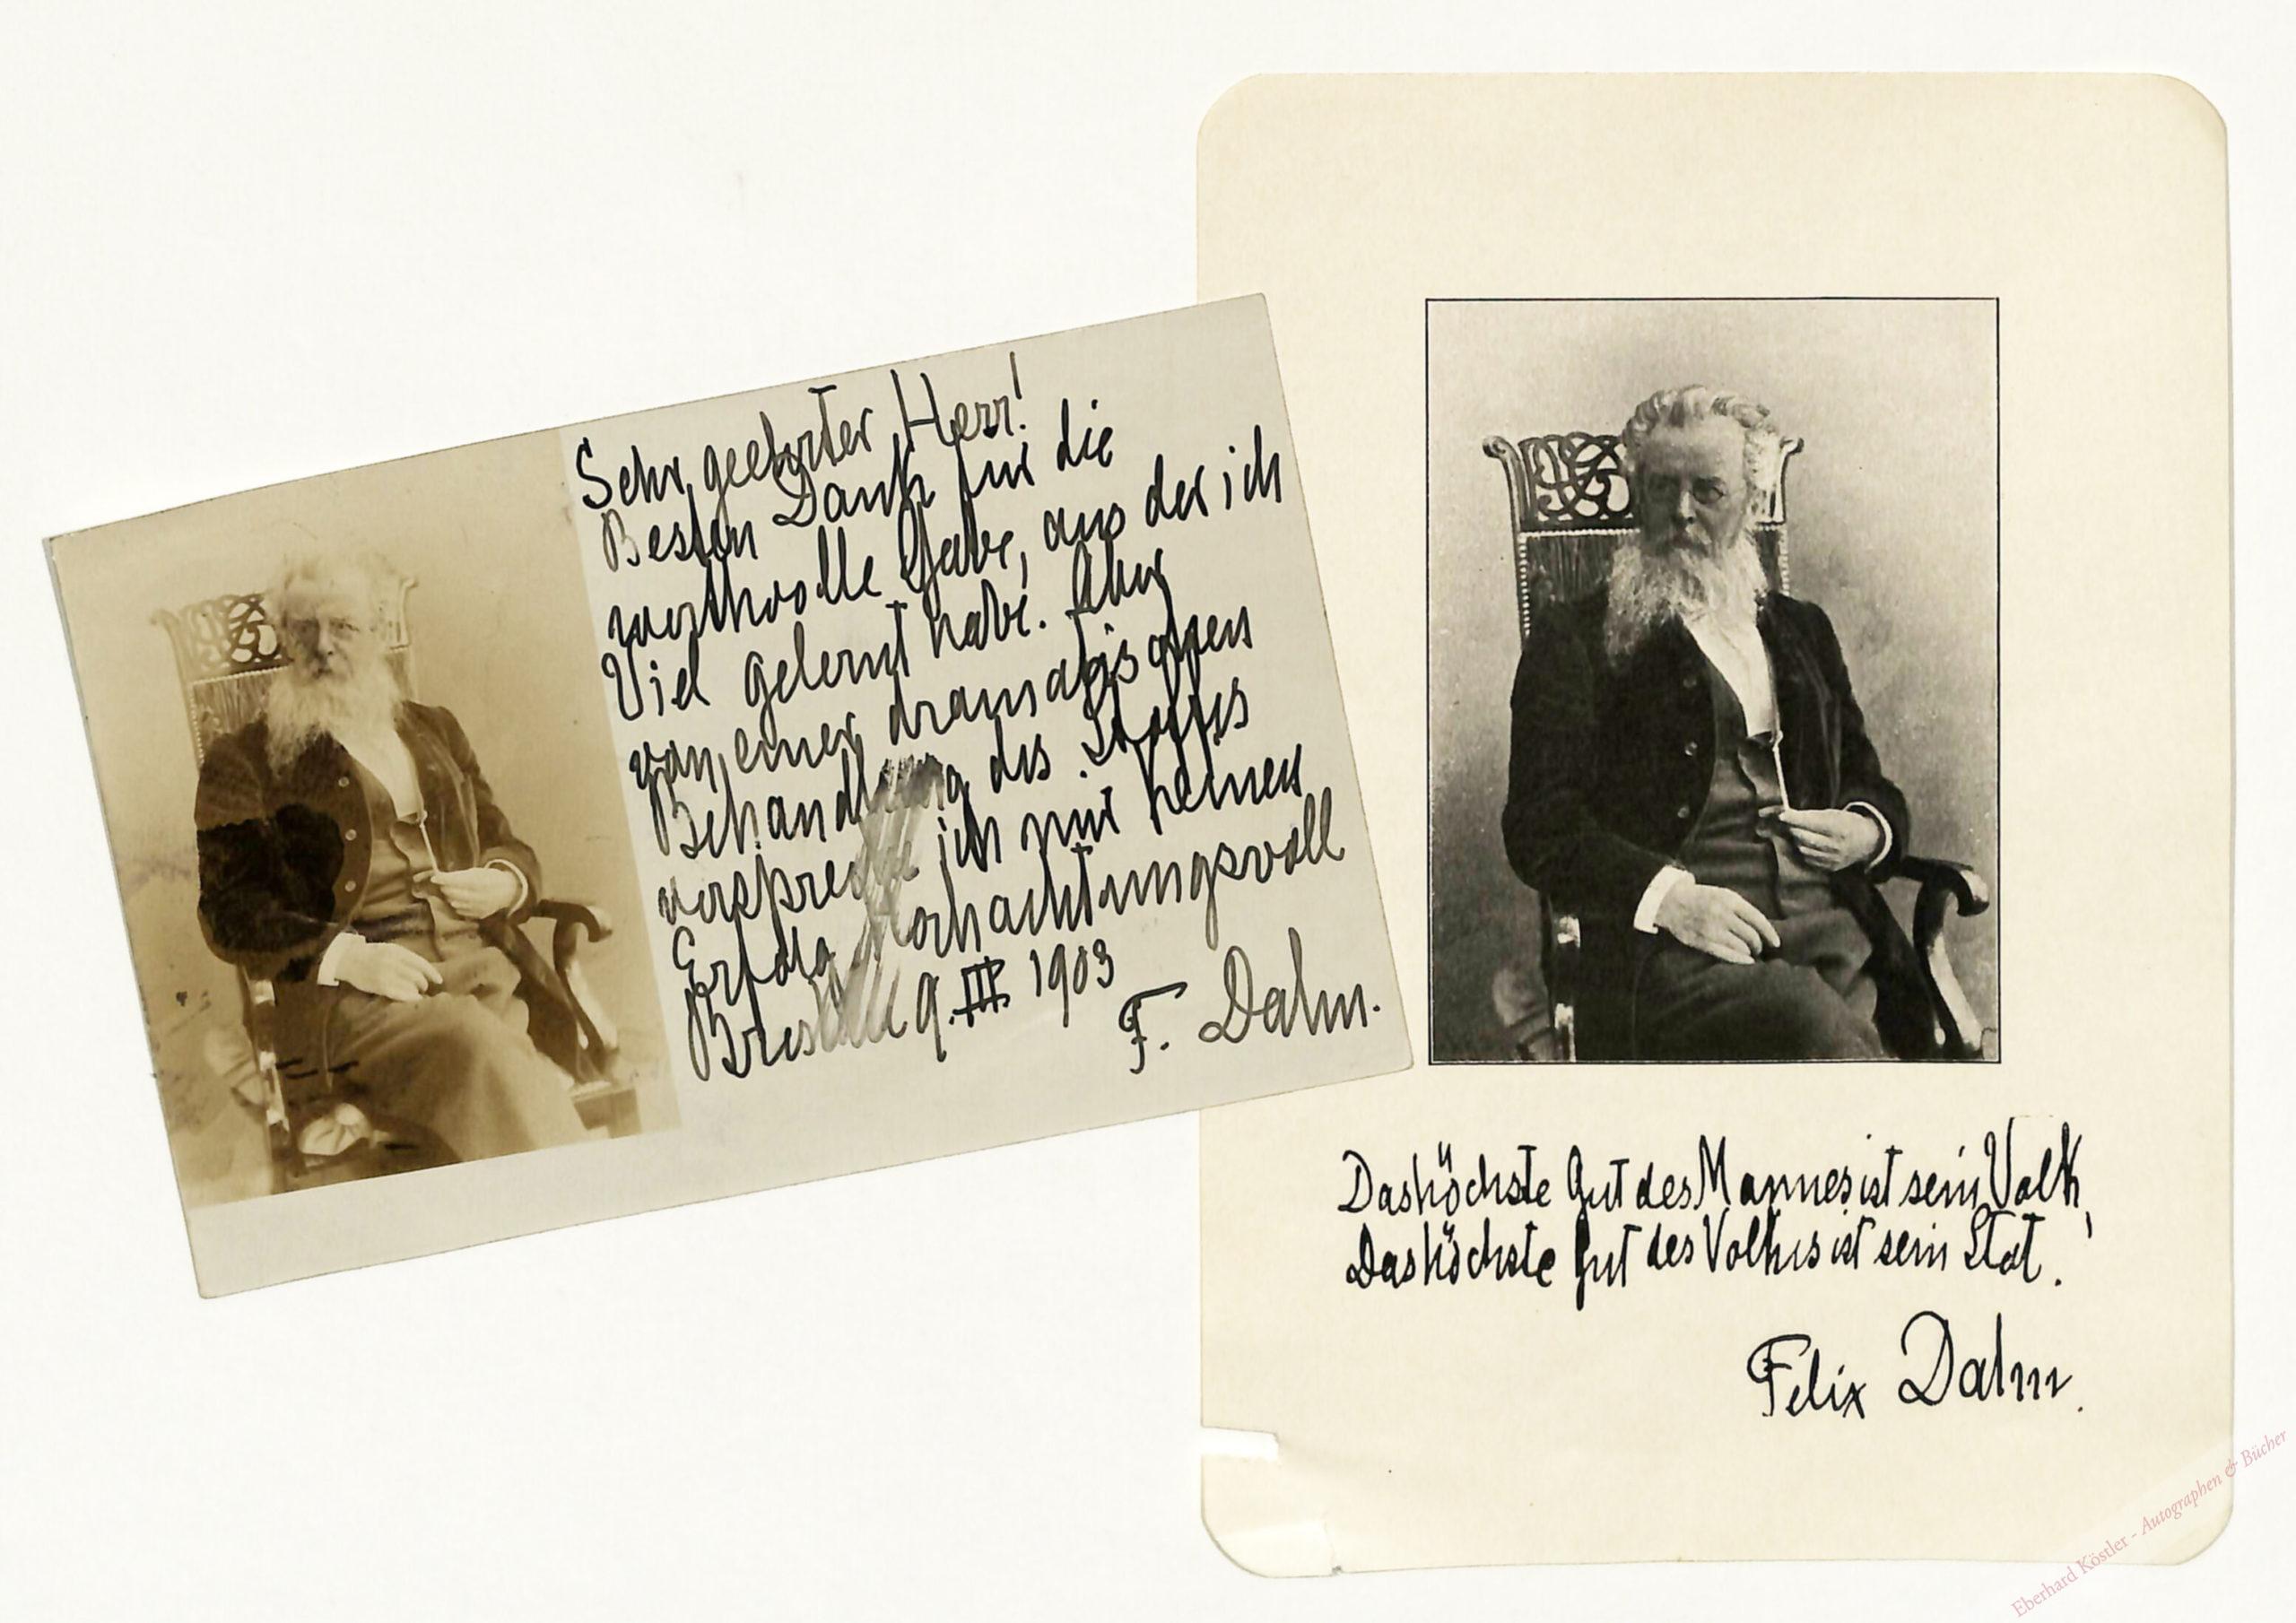 Sehr geehrter Herr!
Besten Dank für die
werthvolle Gabe, aus der ich
Viel gelernt habe. Aber
von einer dramatischen
Behandlung des Stoffes
verspreche ich mir keinen
Erfolg Hochachtungsvoll
Breslau 9. III. 1903
F. Dahn.
Das höchste Gut des Mannes ist sein Volk,
Das höchste Gut des Volkes ist sein Stat.
Felix Dahn.
Eberhard Köstler - Autographen & Bücher